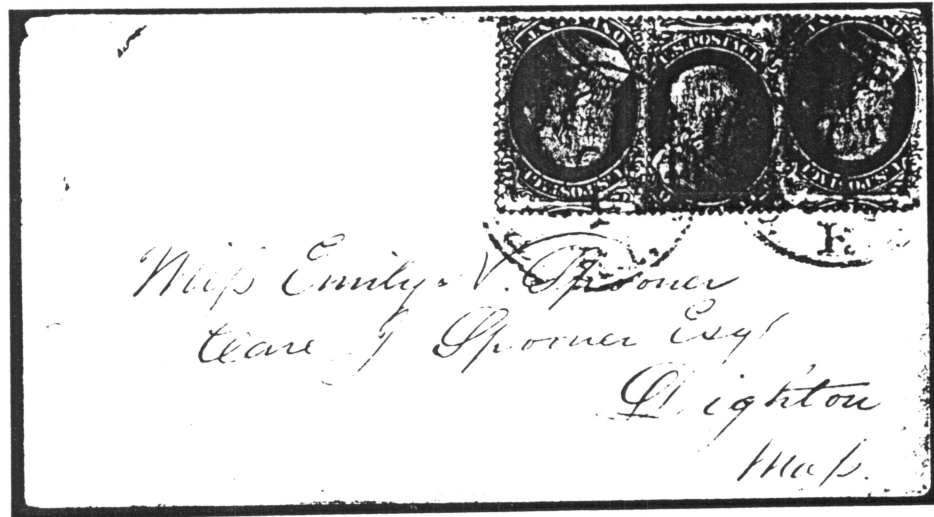 U.S. POSTAGE
Miss Emily V. Spooner
Care J Spooner Esq
Dighton
Mass.